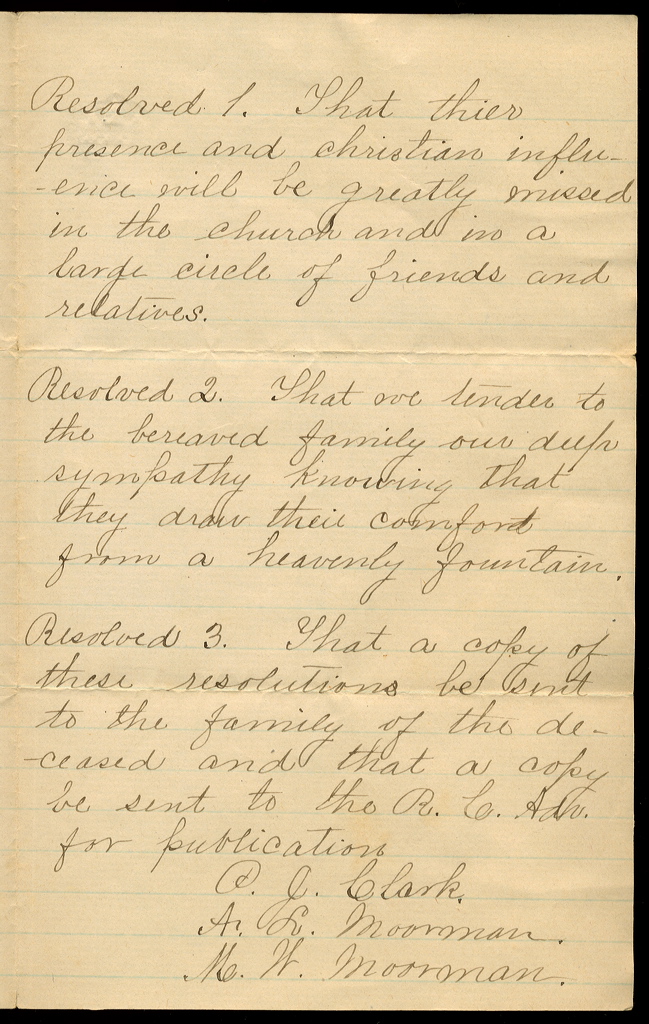 Resolved 1. That thier
presence and christian influ-
-ence will be greatly missed
in the church and in a
large circle of friends and
relatives.
Resolved 2. That we tender to
the bereaved family our deep
sympathy knowing that
they draw their comfort
from a heavenly fountain.
Resolved 3. That a copy of
these resolutions be sent
to the family of the de-
-ceased and that a copy
be sent to the R. C. Adv.
for publication
C. J. Clark.
A. L. Moorman.
M. W. Moorman.